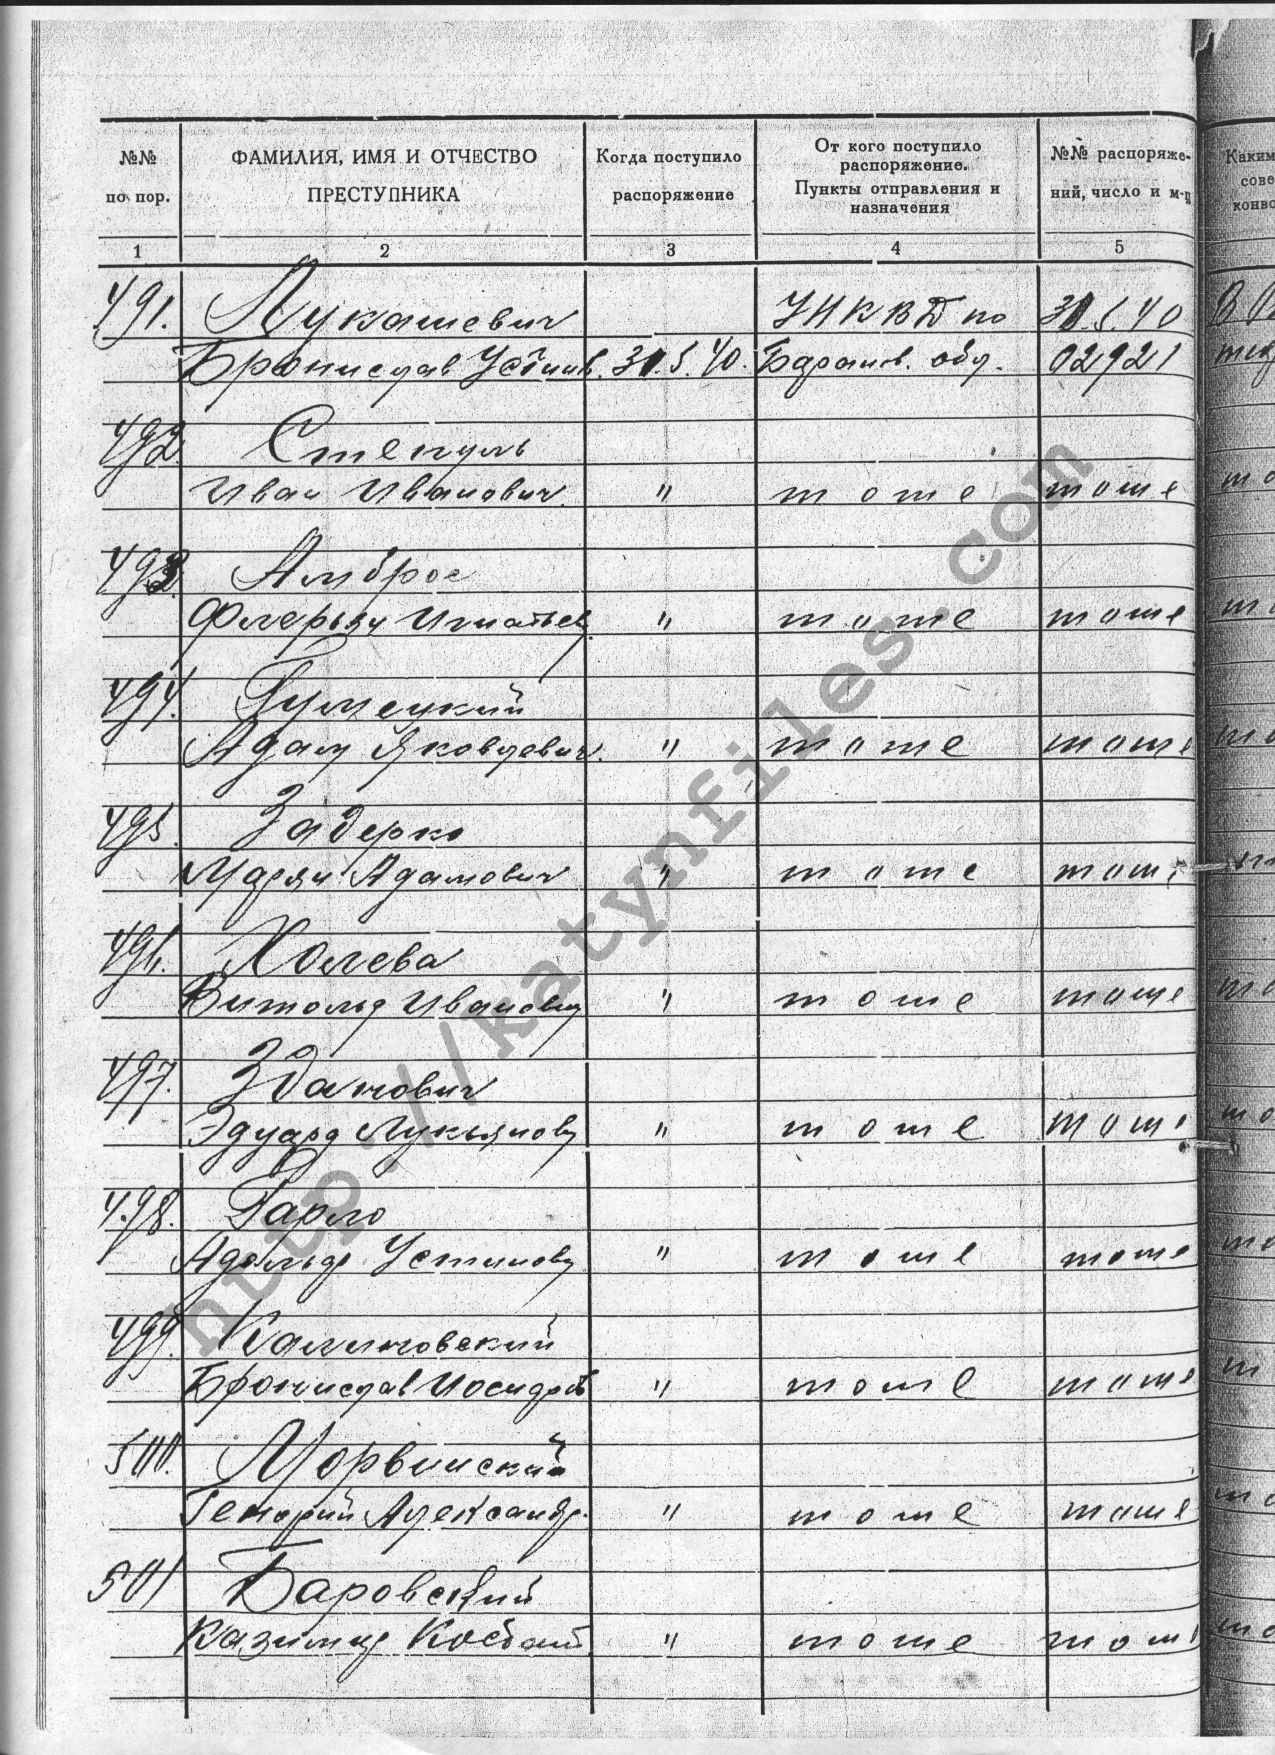 №№ по пор. ФАМИЛИЯ, ИМЯ И ОТЧЕСТВО ПРЕСТУПНИКА Когда поступило распоряжение От кого поступило распоряжение. Пункты отправления и назначения №№ распоряже- ний, число и м-ц
Каким
сове
конво
1 2 3 4 5
491. Лукашевич УНКВД по 31.5.40
Бронислав Устинов. 31.5.40. Баранов. обл. 02921
492 Стекуль
Иван Иванович " тоже тоже
493 Амброс
Флерьян Игнатьев. " тоже тоже
494. Гумецкий
Адам Яковлевич. " тоже тоже
495. Задерко
Марян Адамович " тоже тоже
496. Холева
Витольд Иванович " тоже тоже
497. Зданович
Эдуард Лукьянов " тоже тоже
498. Гарло
Адольф Устинов " тоже тоже
499. Калиновский
Бронислав Иосифов " тоже тоже
500. Морвинский
Генорий Александр. " тоже тоже
501 Баровский
Казимир Костант " тоже тоже
http://katynfiles.com